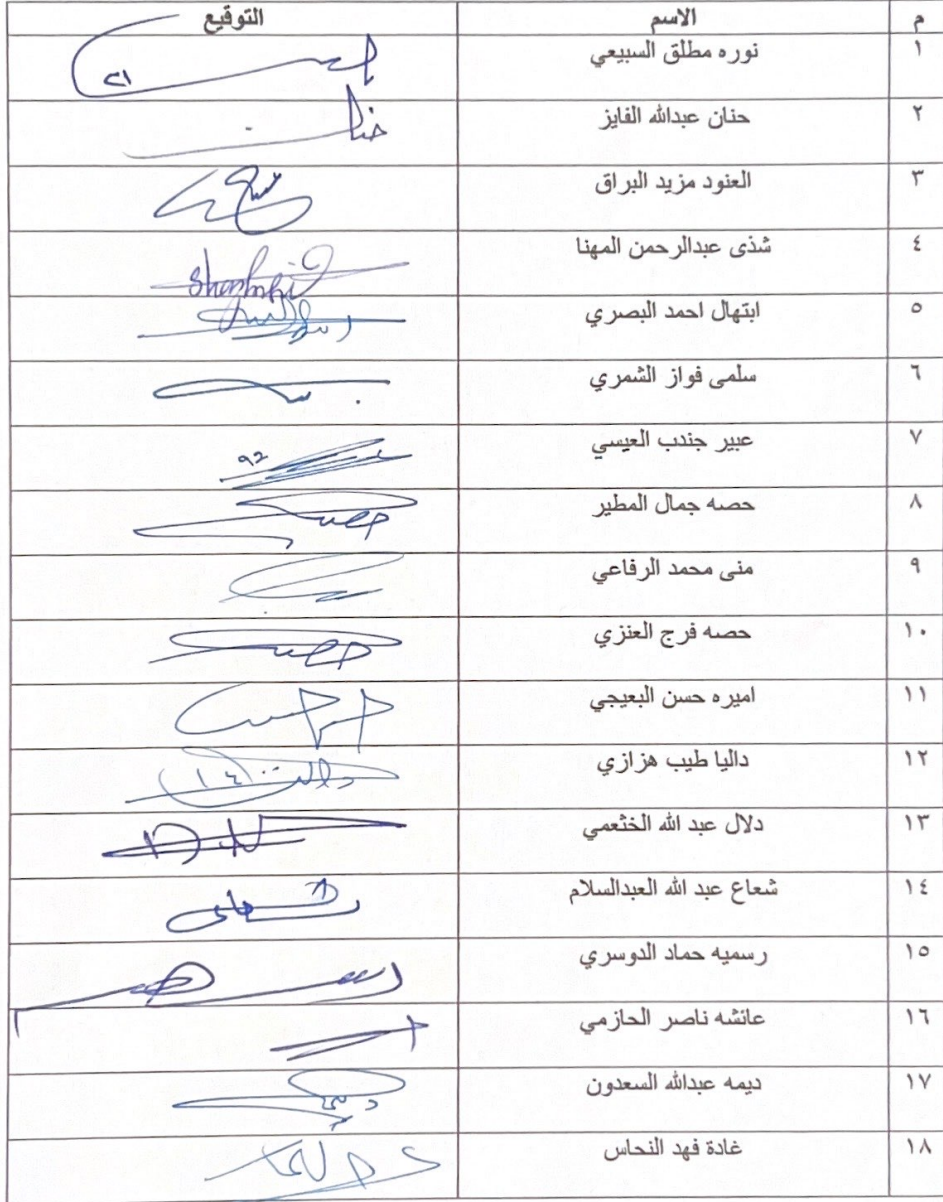 م الاسم التوقيع
١ نوره مطلق السبيعي
٢ حنان عبدالله الفايز حنان
٣ العنود مزيد البراق
٤ شذى عبدالرحمن المهنا
٥ ابتهال احمد البصري
٦ سلمى فواز الشمري
٧ عبير جندب العيسي ٩٢
٨ حصه جمال المطير حصه
٩ منى محمد الرفاعي
١٠ حصه فرج العنزي حصه
١١ اميره حسن البعيجي
١٢ داليا طيب هزازي داليا ١٤
١٣ دلال عبد الله الخثعمي
١٤ شعاع عبد الله العبدالسلام شعاع
١٥ رسميه حماد الدوسري
١٦ عائشه ناصر الحازمي
١٧ ديمه عبدالله السعدون
١٨ غادة فهد النحاس